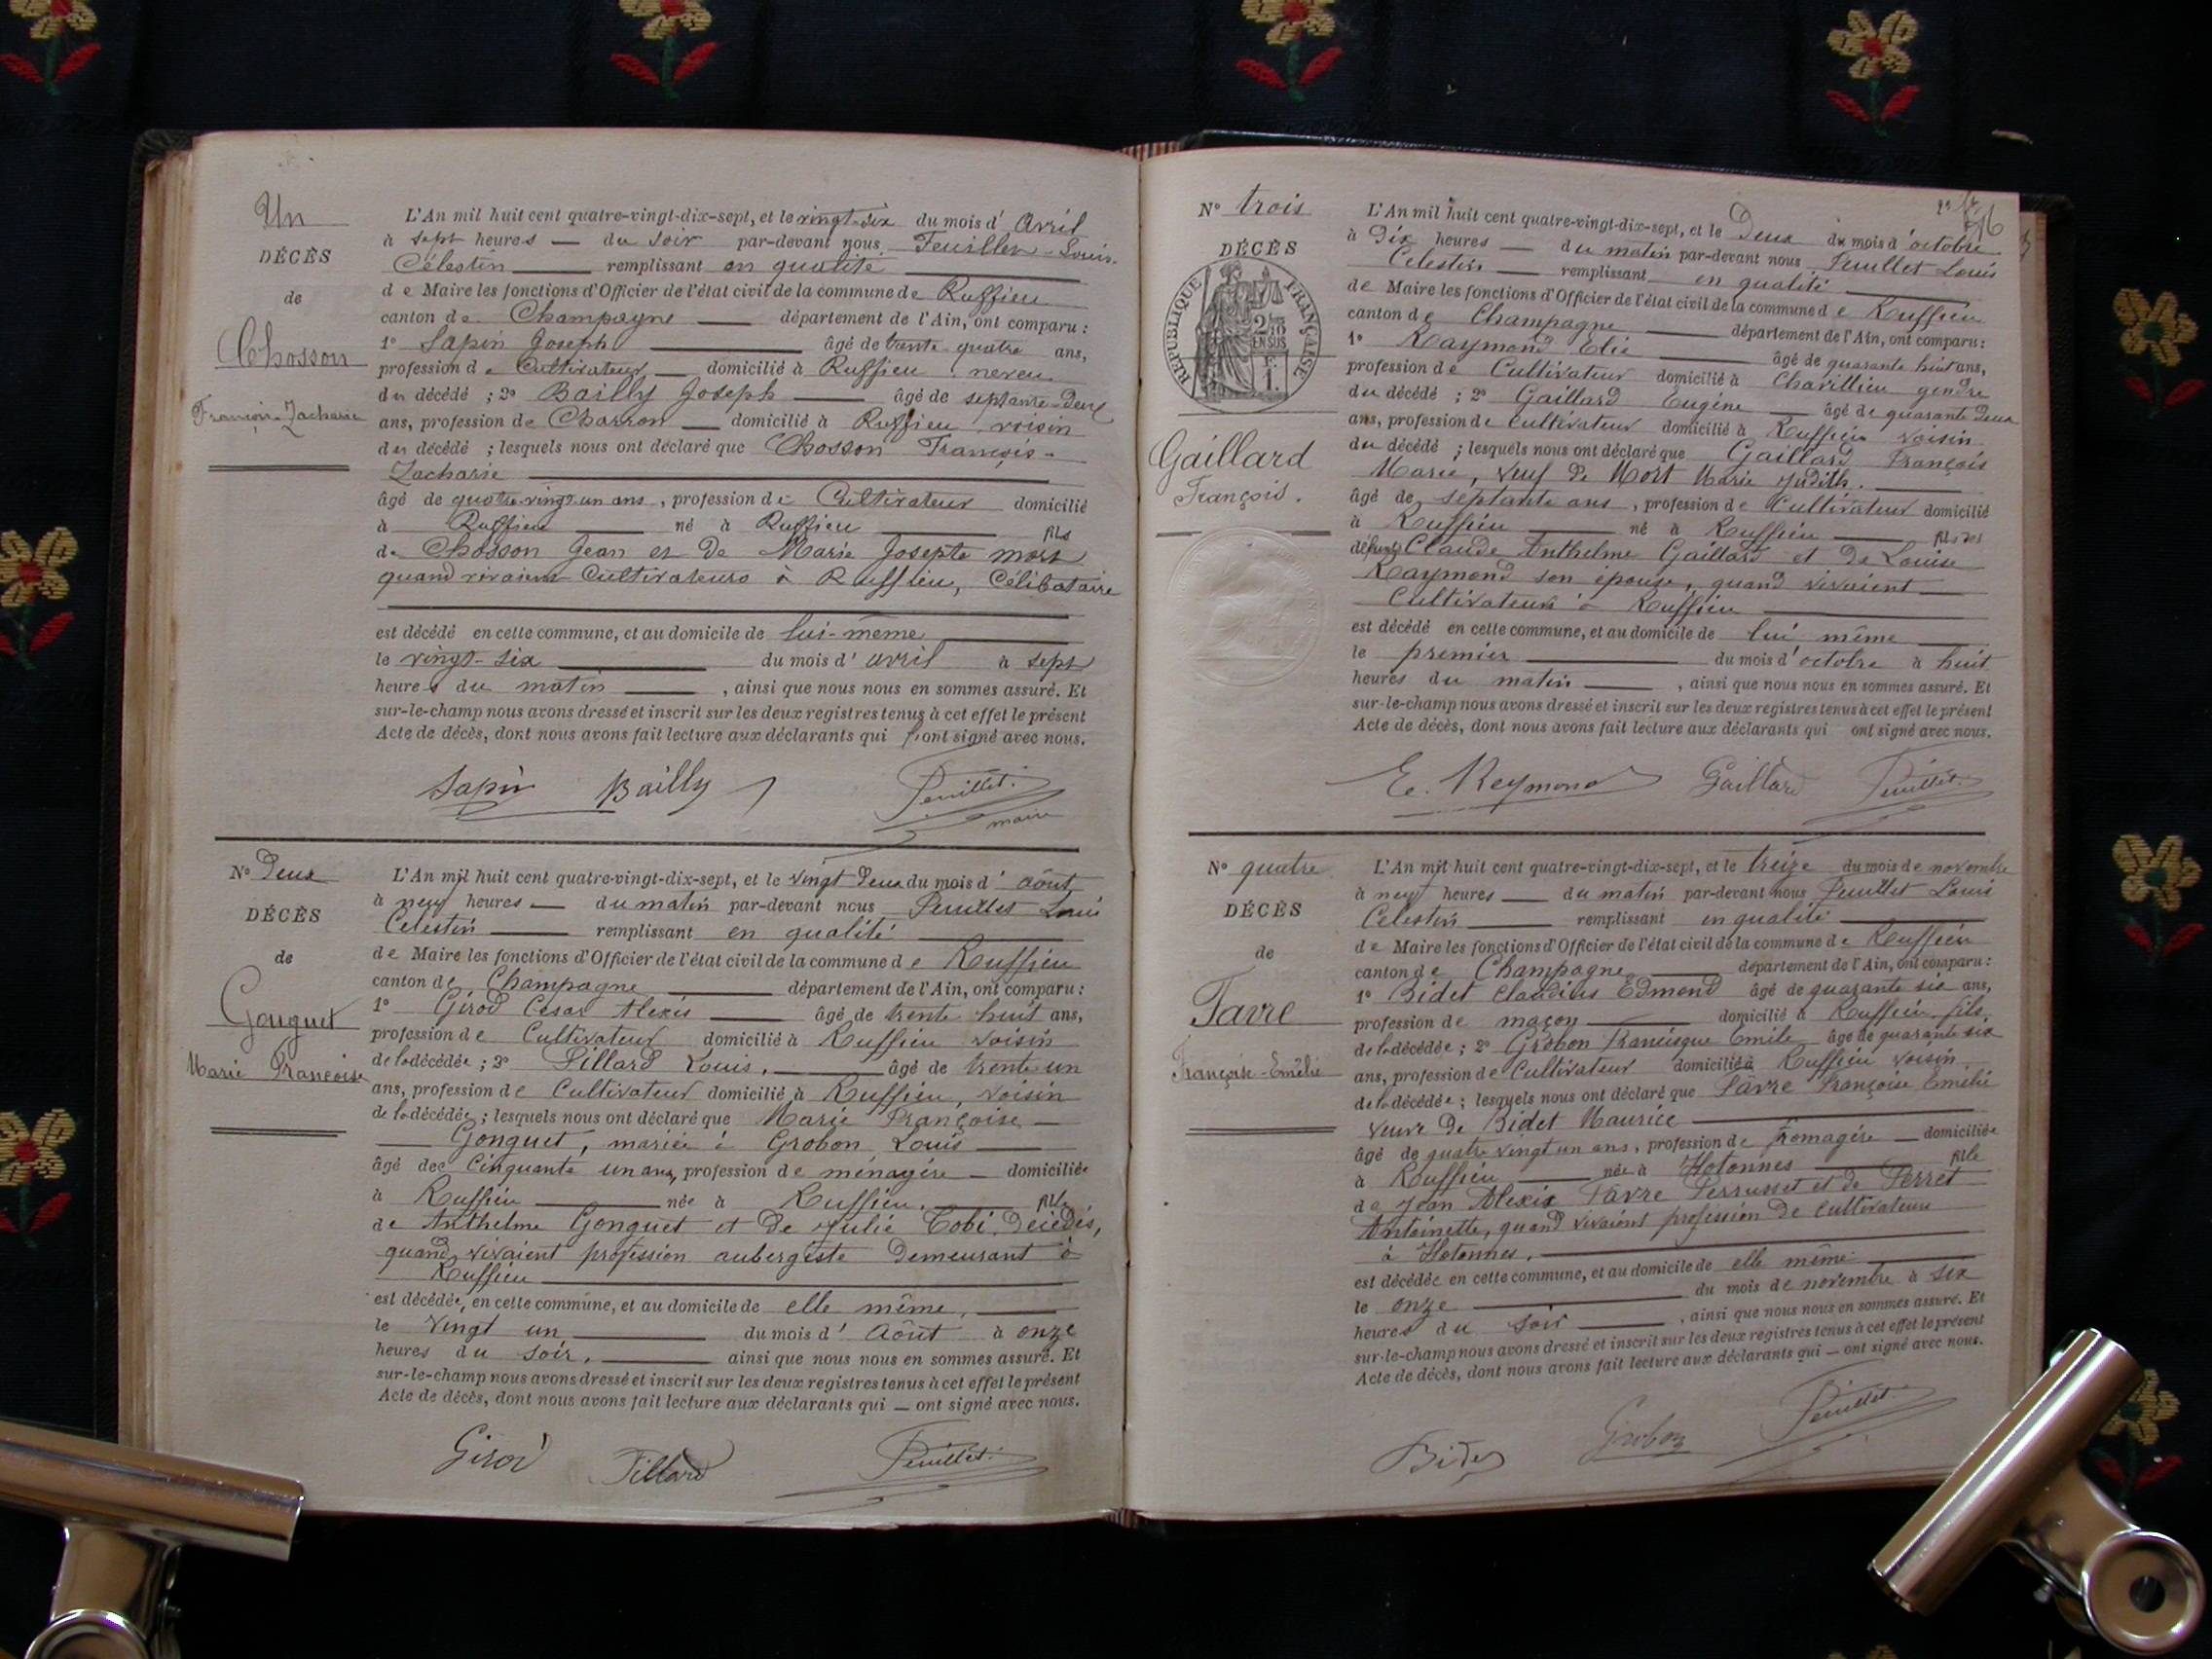 Un
DÉCÈS
de
Chosson
François-Zacharie
L'An mil huit cent quatre-vingt-dix-sept, et le vingt-six du mois d' Avril
à sept heures du soir par-devant nous Feuillet Louis
Célestin remplissant en qualité
de Maire les fonctions d'Officier de l'état civil de la commune de Ruffieu
canton de Champagne département de l'Ain, ont comparu :
1° Sapin Joseph âgé de trente quatre ans,
profession de Cultivateur domicilié à Ruffieu neveu
du décédé ; 2° Bailly Joseph âgé de septante-deux
ans, profession de Charron domicilié à Ruffieu voisin
du décédé ; lesquels nous ont déclaré que Chosson François-
Zacharie
âgé de quatre-vingt un ans, profession de Cultivateur domicilié
à Ruffieu né à Ruffieu fils
de Chosson Jean et de Marie Josepte mort
quand vivaient Cultivateurs à Ruffieu, Célibataire
est décédé en cette commune, et au domicile de lui-même
le vingt-six du mois d' avril à sept
heures du matin, ainsi que nous nous en sommes assuré. Et
sur-le-champ nous avons dressé et inscrit sur les deux registres tenus à cet effet le présent
Acte de décès, dont nous avons fait lecture aux déclarants qui ont signé avec nous.
Sapin Bailly Feuillet
maire
N° Deux
DÉCÈS
de
Gonguet
Marie Françoise
L'An mil huit cent quatre-vingt-dix-sept, et le vingt deux du mois d' août
à neuf heures du matin par-devant nous Feuillet Louis
Celestin remplissant en qualité
de Maire les fonctions d'Officier de l'état civil de la commune de Ruffieu
canton de Champagne département de l'Ain, ont comparu :
1° Girod César Alexis âgé de trente huit ans,
profession de Cultivateur domicilié à Ruffieu voisin
de la décédée ; 2° Pillard Louis, âgé de trente un
ans, profession de Cultivateur domicilié à Ruffieu, voisin
de la décédée ; lesquels nous ont déclaré que Marie Françoise
Gonguet, mariée à Grobon Louis
âgé de Cinquante un ans, profession de ménagère domiciliée
à Ruffieu née à Ruffieu. fille
de Anthelme Gonguet et de Julie Tobi décédés,
quand vivaient profession aubergiste demeurant à
Ruffieu
est décédée, en cette commune, et au domicile de elle même,
le vingt un du mois d' Août à onze
heures du soir, ainsi que nous nous en sommes assuré. Et
sur-le-champ nous avons dressé et inscrit sur les deux registres tenus à cet effet le présent
Acte de décès, dont nous avons fait lecture aux déclarants qui — ont signé avec nous.
Girod Pillard Feuillet
N° trois
DÉCÈS
RÉPUBLIQUE FRANÇAISE
2/10
EN SUS
F.
1.
Gaillard
François.
L'An mil huit cent quatre-vingt-dix-sept, et le Deux du mois d'octobre
à Dix heures du matin par-devant nous Feuillet Louis
Celestin remplissant en qualité
de Maire les fonctions d'Officier de l'état civil de la commune de Ruffieu
canton de Champagne département de l'Ain, ont comparu :
1° Raymond Elie âgé de quarante huit ans,
profession de Cultivateur domicilié à Chavillieu gendre
du décédé ; 2° Gaillard Eugène âgé de quarante deux
ans, profession de Cultivateur domicilié à Ruffieu voisin
du décédé ; lesquels nous ont déclaré que Gaillard François
Marie, veuf de Mort Marie Judith.
âgé de septante ans, profession de Cultivateur domicilié
à Ruffieu né à Ruffieu fils des
défunts Claude Anthelme Gaillard et de Louise
Raymond son épouse, quand vivaient
Cultivateurs à Ruffieu
est décédé en cette commune, et au domicile de lui même
le premier du mois d'octobre à huit
heures du matin, ainsi que nous nous en sommes assuré. Et
sur-le-champ nous avons dressé et inscrit sur les deux registres tenus à cet effet le présent
Acte de décès, dont nous avons fait lecture aux déclarants qui ont signé avec nous.
E. Reymond Gaillard Feuillet
N° quatre
DÉCÈS
de
Favre
Françoise-Emélie
L'An mil huit cent quatre-vingt-dix-sept, et le treize du mois de novembre
à neuf heures du matin par-devant nous Feuillet Louis
Celestin remplissant en qualité
de Maire les fonctions d'Officier de l'état civil de la commune de Ruffieu
canton de Champagne département de l'Ain, ont comparu :
1° Bidet Claudius Edmond âgé de quarante six ans,
profession de maçon domicilié à Ruffieu fils
de la décédée ; 2° Grobon Francisque Emile âgé de quarante six
ans, profession de Cultivateur domicilié à Ruffieu voisin
de la décédée ; lesquels nous ont déclaré que Favre Françoise Emélie
veuve de Bidet Maurice
âgé de quatre vingt un ans, profession de fromagère domiciliée
à Ruffieu née à Hotonnes fille
de Jean Alexis Favre Perrusset et de Perret
Antoinette, quand vivaient profession de cultivateurs
à Hotonnes.
est décédée en cette commune, et au domicile de elle même
le onze du mois de novembre à six
heures du soir, ainsi que nous nous en sommes assuré. Et
sur-le-champ nous avons dressé et inscrit sur les deux registres tenus à cet effet le présent
Acte de décès, dont nous avons fait lecture aux déclarants qui — ont signé avec nous.
Bidet Grobon Feuillet